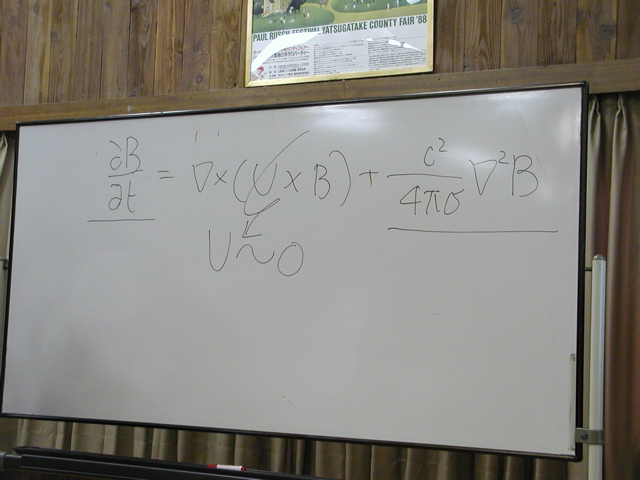 PAUL RUSCH FESTIVAL YATSUGATAKE COUNTY FAIR '88
∂B/∂t = ∇×(U×B) + c²/4πσ ∇²B
U~0